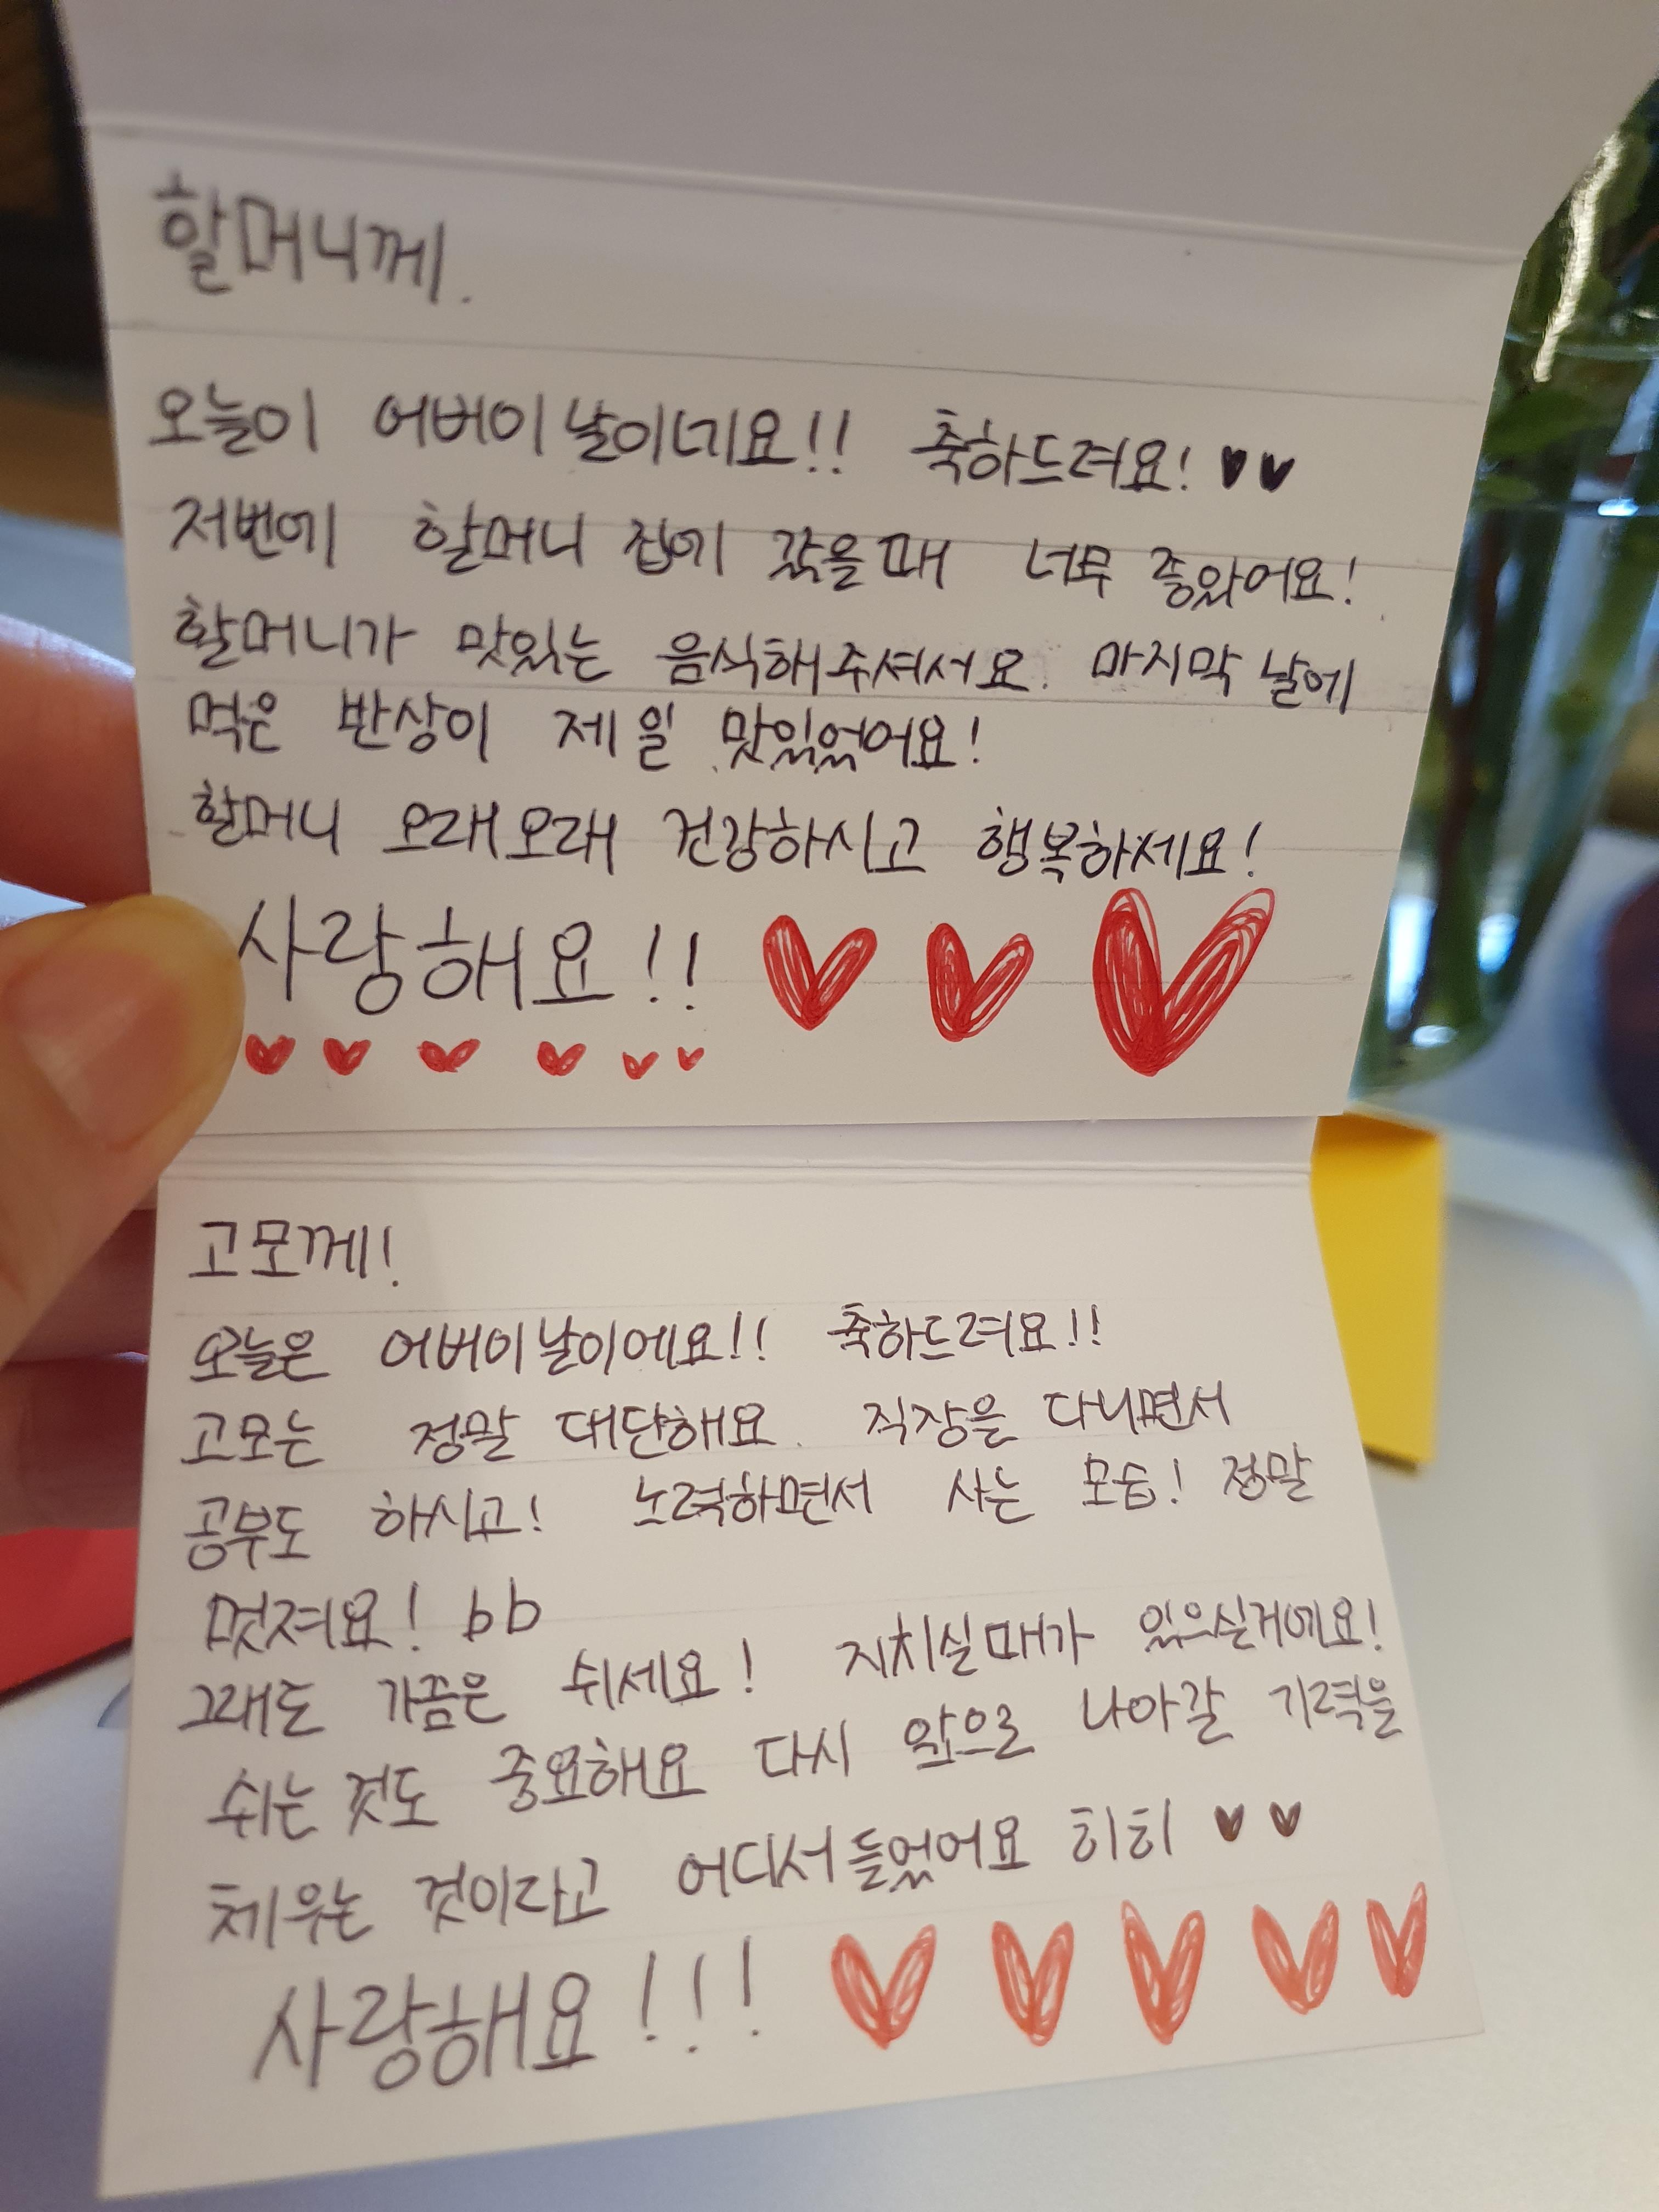 할머니께.
오늘이 어버이날이네요!! 축하드려요! ♥♥
저번에 할머니 집에 갔을때 너무 좋았어요!
할머니가 맛있는 음식해주셔서요. 마지막 날에
먹은 밥상이 제일 맛있었어요!
할머니 오래오래 건강하시고 행복하세요!
사랑해요!! ♥ ♥ ♥
♥ ♥ ♥ ♥ ♥ ♥
고모께!
오늘은 어버이날이에요!! 축하드려요!!
고모는 정말 대단해요. 직장을 다니면서
공부도 하시고! 노력하면서 사는 모습! 정말
멋져요! bb
그래도 가끔은 쉬세요! 지치실때가 있으실거에요!
쉬는 것도 중요해요 다시 앞으로 나아갈 기력을
체우는 것이라고 어디서 들었어요 히히 ♥ ♥
사랑해요!!! ♥ ♥ ♥ ♥ ♥